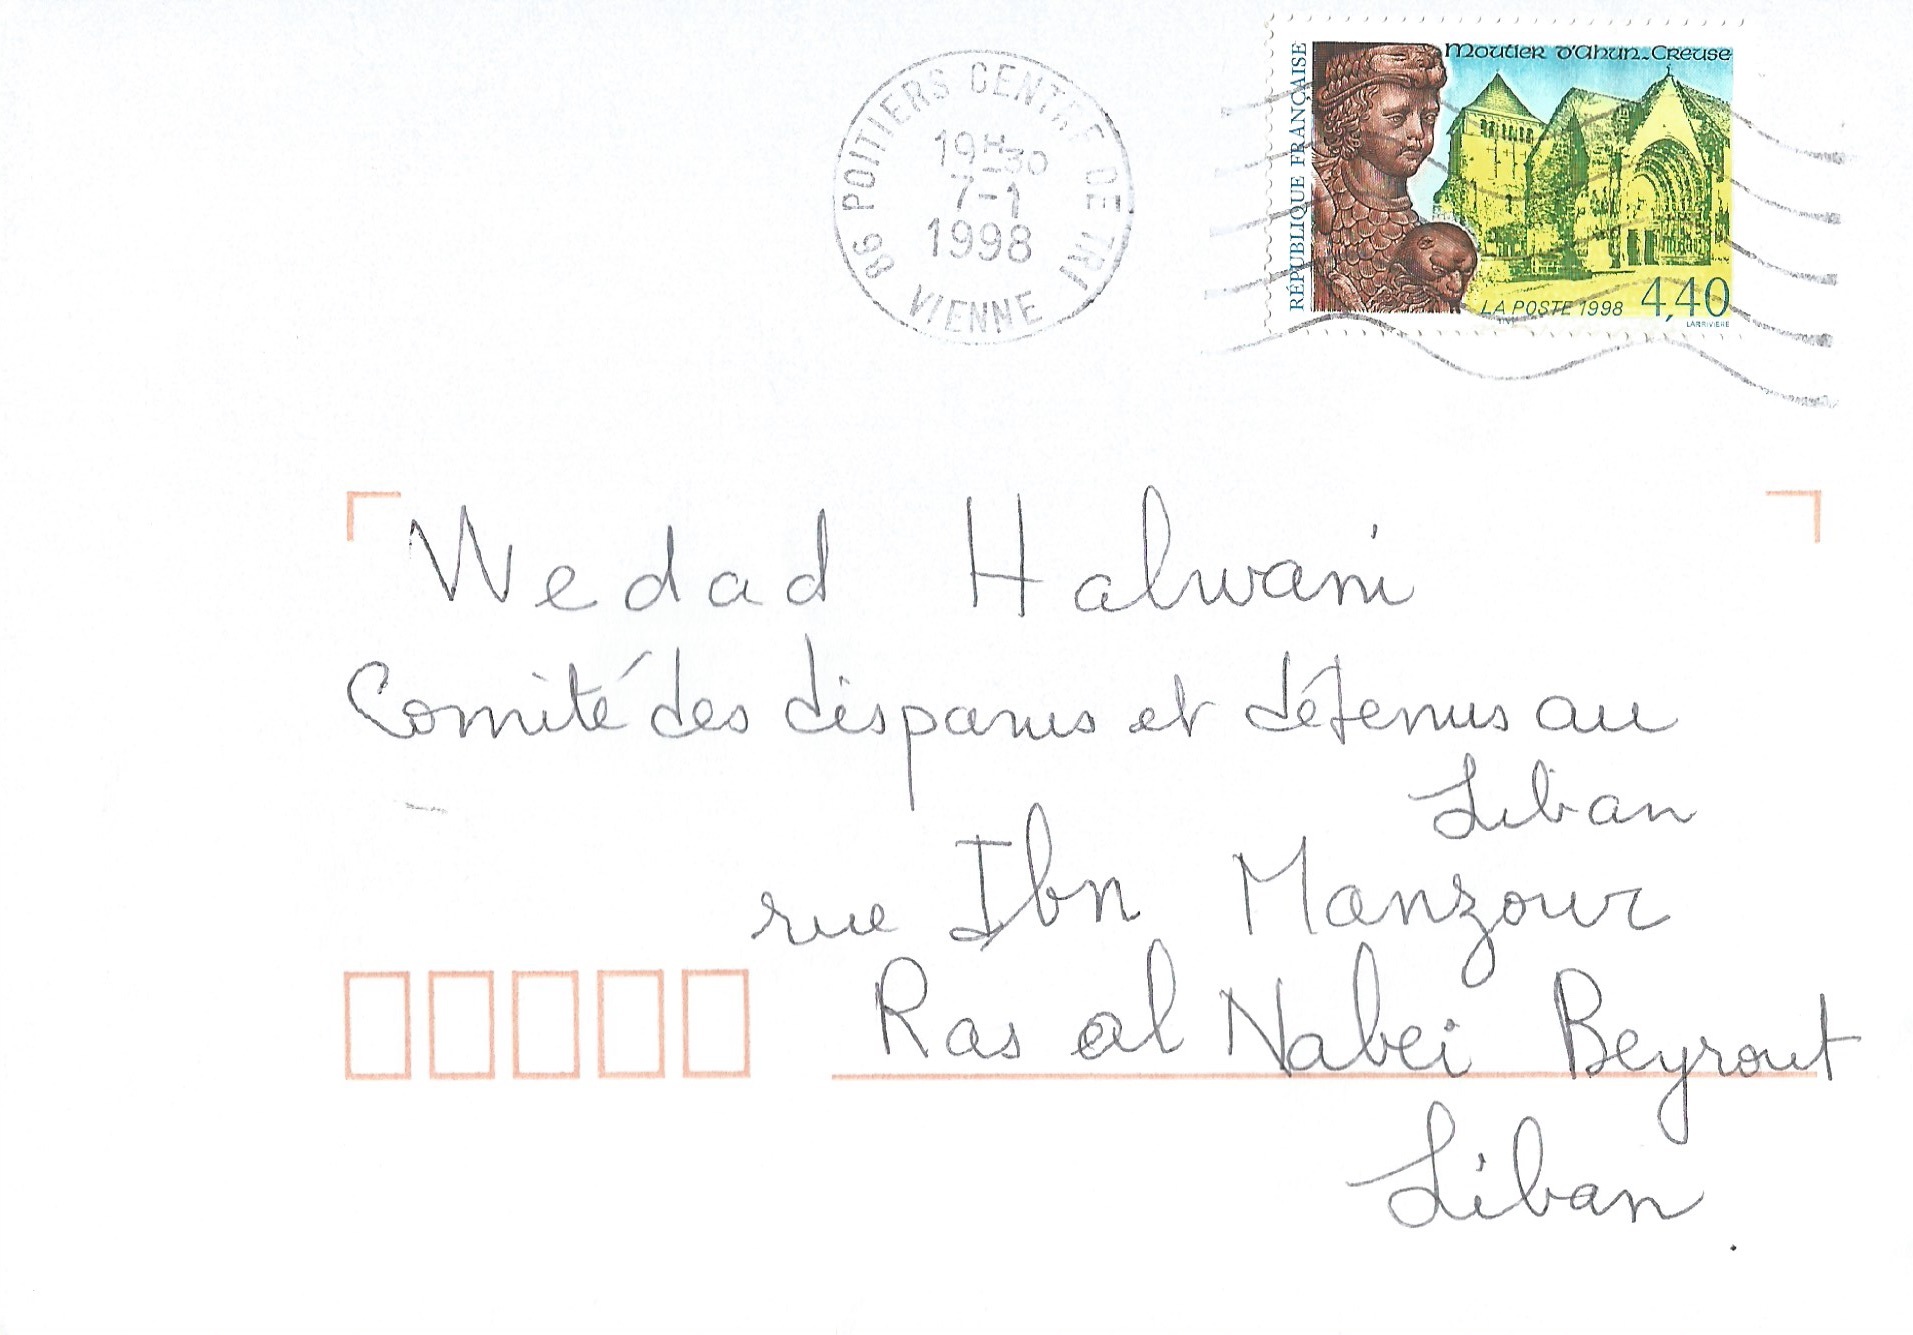 86 POITIERS CENTRE DE TRI
19H30
7-1
1998
VIENNE
RÉPUBLIQUE FRANÇAISE
Moutier d'Ahun_Creuse
LA POSTE 1998 4,40
LARRIVIÈRE
Wedad Halwani
Comité des disparus et détenus au
Liban
rue Ibn Manzour
Ras al Nabei Beyrout
Liban